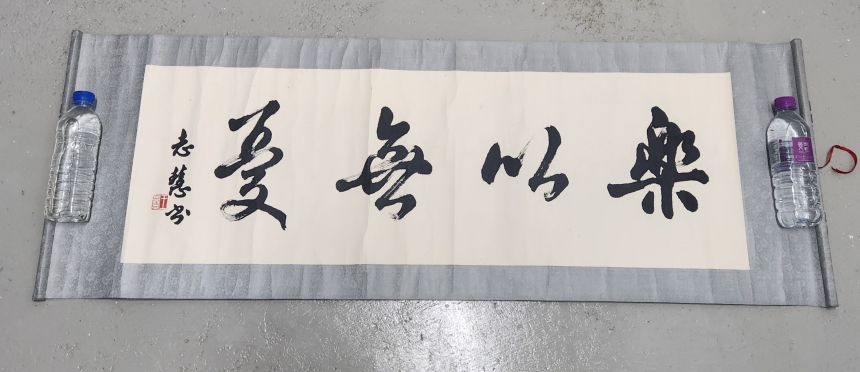 樂以無憂
志慧书